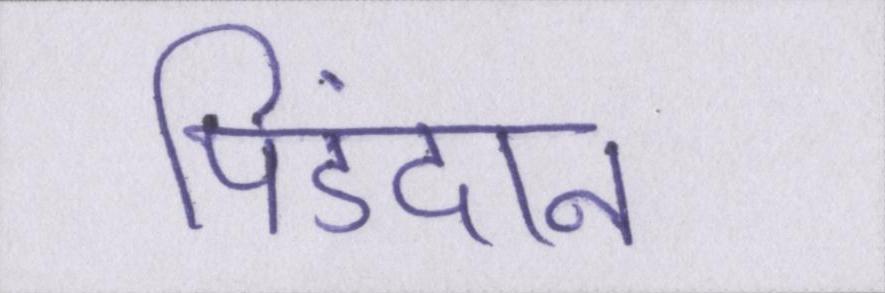 पिडंदान